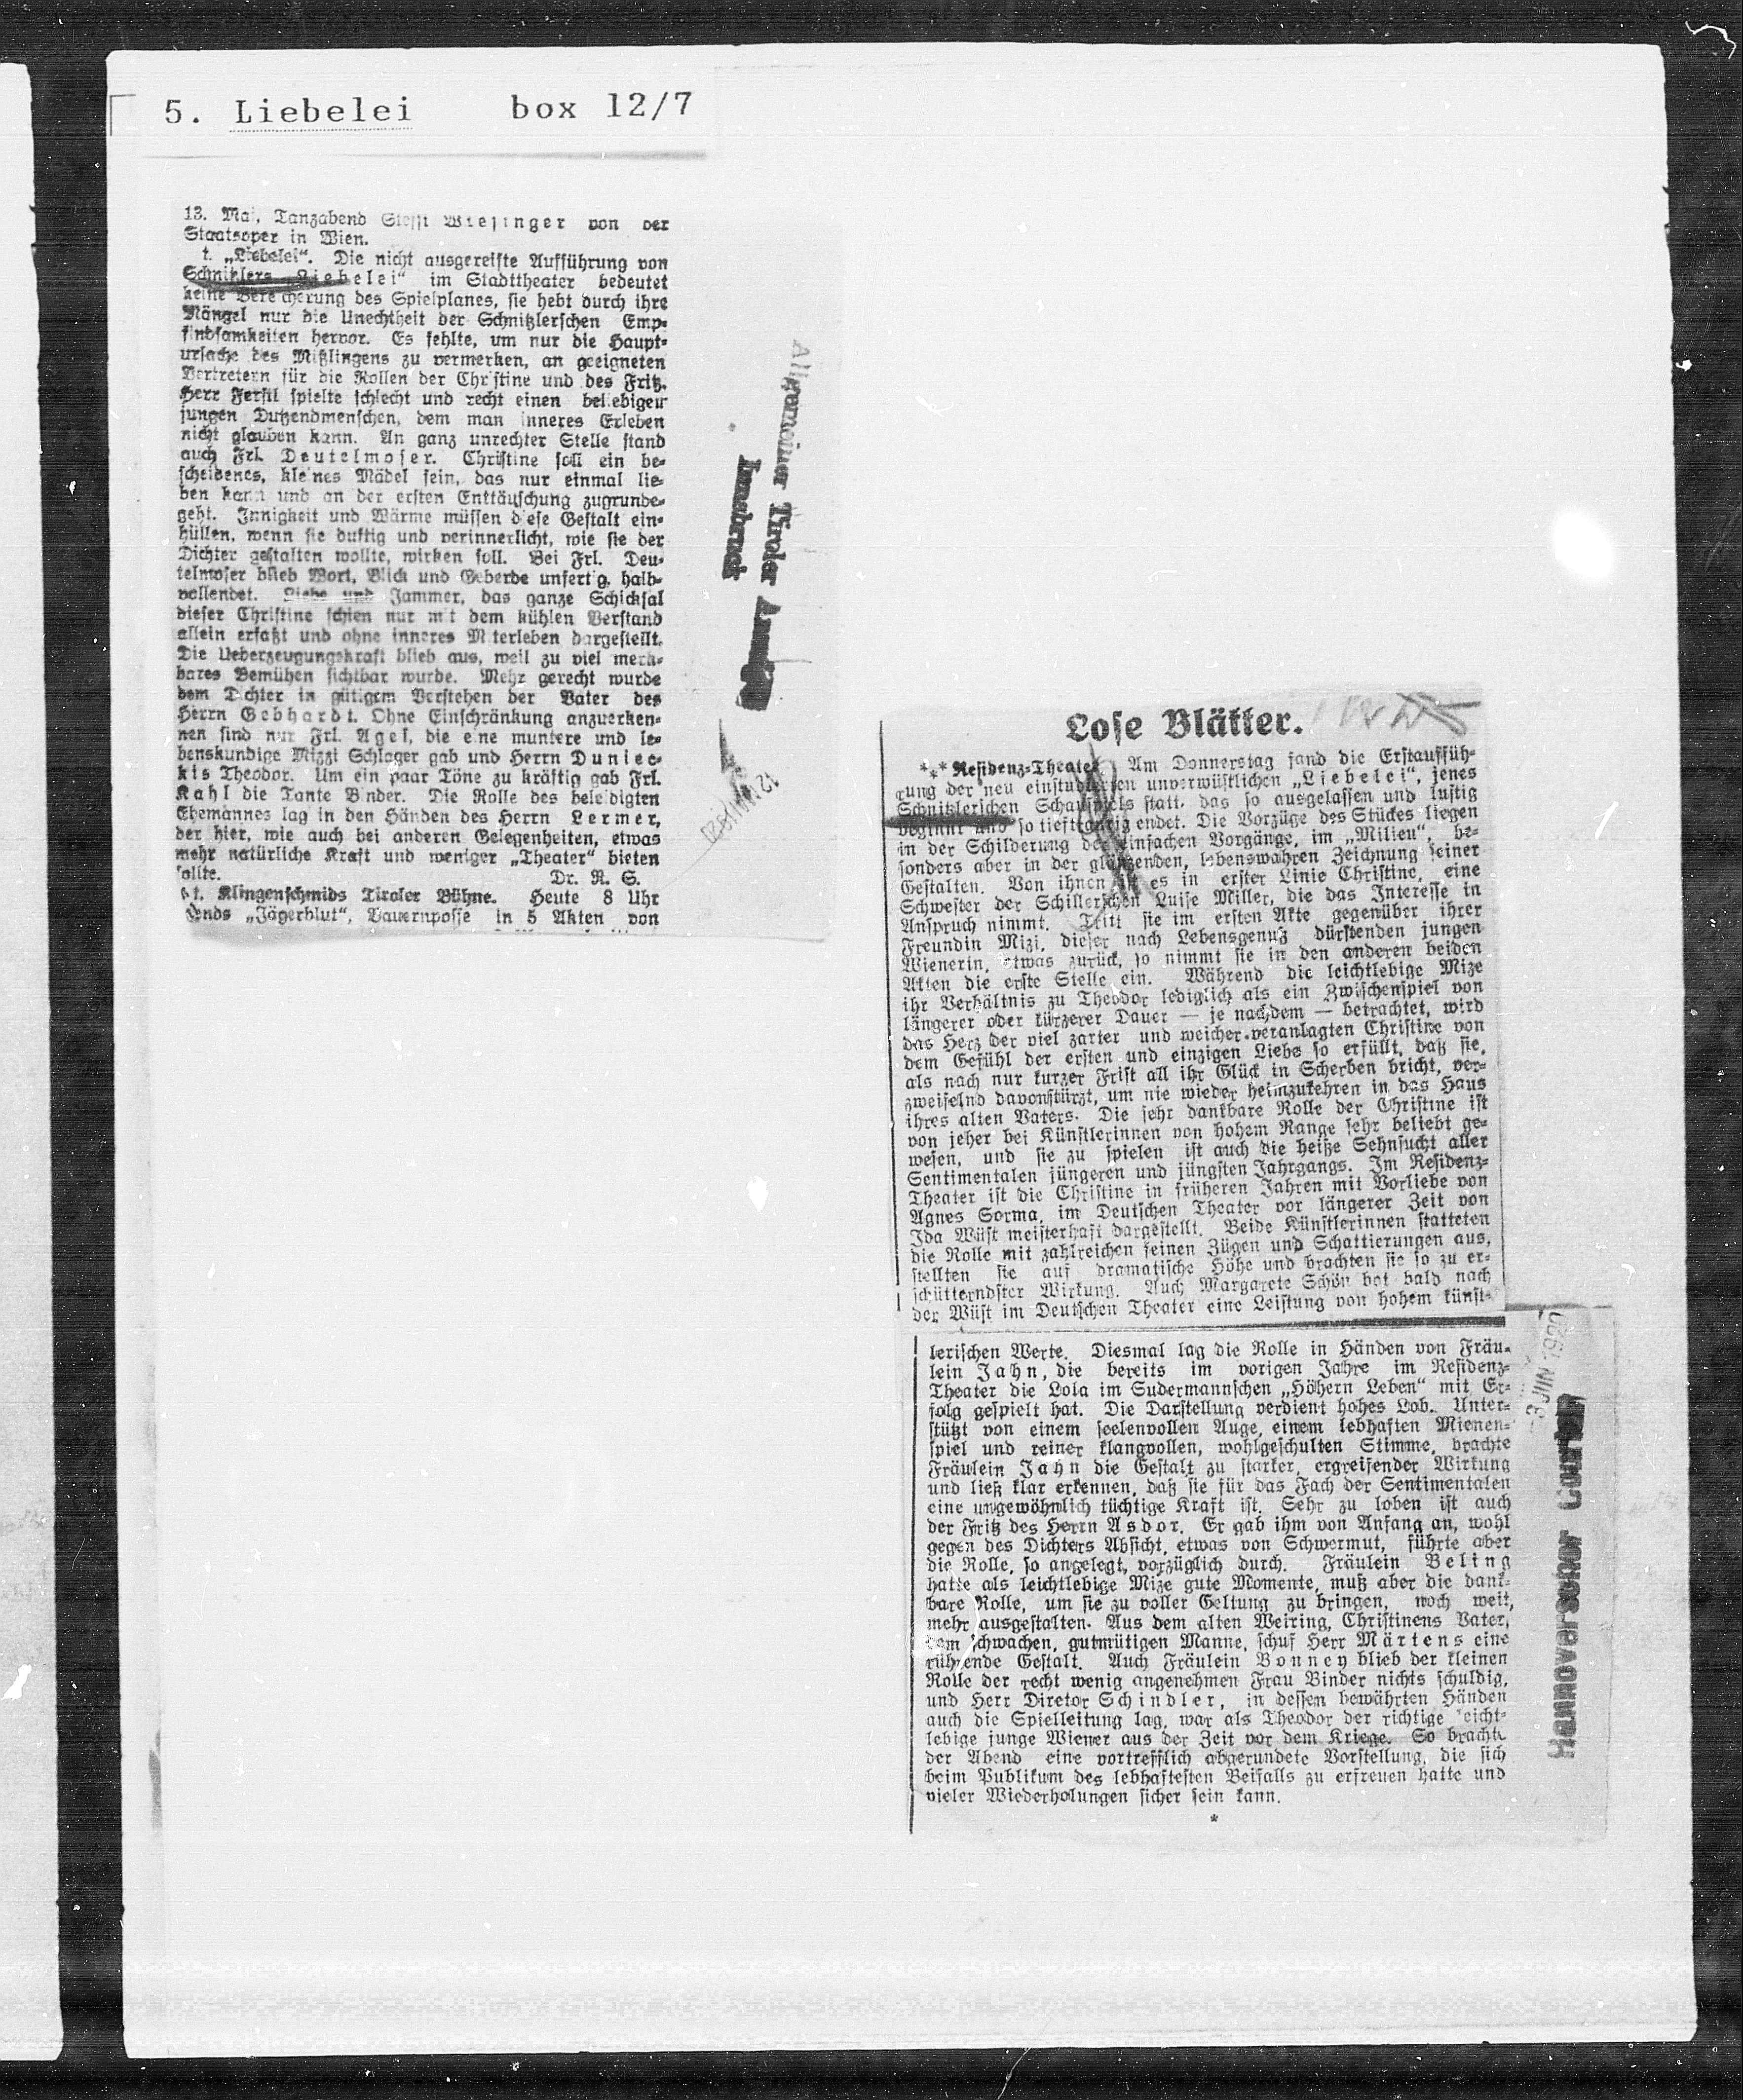 5. Liebelei box 12/7
13. Mai. Tanzabend Steffi Wiesinger von der
Staatsoper in Wien.
t. „Liebelei“. Die nicht ausgereifte Aufführung von
Schnitzlers „Liebelei“ im Stadttheater bedeutet
keine Bereicherung des Spielplanes, sie hebt durch ihre
Mängel nur die Unechtheit der Schnitzlerschen Emp-
findsamkeiten hervor. Es fehlte, um nur die Haupt-
ursache des Mißlingens zu vermerken, an geeigneten
Vertretern für die Rollen der Christine und des Fritz.
Herr Ferstl spielte schlecht und recht einen beliebigen
jungen Dutzendmenschen, dem man inneres Erleben
nicht glauben kann. An ganz unrechter Stelle stand
auch Frl. Deutelmoser. Christine soll ein be-
scheidenes, kleines Mädel sein, das nur einmal lie-
ben kann und an der ersten Enttäuschung zugrunde-
geht. Innigkeit und Wärme müssen diese Gestalt ein-
hüllen, wenn sie duftig und verinnerlicht, wie sie der
Dichter gestalten wollte, wirken soll. Bei Frl. Deu-
telmoser blieb Wort, Blick und Geberde unfertig, halb-
vollendet. Liebe und Jammer, das ganze Schicksal
dieser Christine schien nur mit dem kühlen Verstand
allein erfaßt und ohne inneres Miterleben dargestellt.
Die Ueberzeugungskraft blieb aus, weil zu viel merk-
bares Bemühen sichtbar wurde. Mehr gerecht wurde
dem Dichter in gütigem Verstehen der Vater des
Herrn Gebhardt. Ohne Einschränkung anzuerken-
nen sind nur Frl. Agel, die eine muntere und le-
benskundige Mizzi Schlager gab und Herrn Duniec-
kis Theodor. Um ein paar Töne zu kräftig gab Frl.
Kahl die Tante Binder. Die Rolle des beleidigten
Ehemannes lag in den Händen des Herrn Lermer,
der hier, wie auch bei anderen Gelegenheiten, etwas
mehr natürliche Kraft und weniger „Theater“ bieten
sollte. Dr. R. S.
t. Klingenschmids Tiroler Bühne. Heute 8 Uhr
„Jägerblut“, Bauernposse in 5 Akten von
Allgemeiner Tiroler Anzeiger
Innsbruck
Lose Blätter.
*** Residenz-Theater. Am Donnerstag fand die Erstauffüh-
rung der neu einstudierten unverwüstlichen „Liebelei“, jenes
Schnitzlerschen Schauspiels statt, das so ausgelassen und lustig
beginnt und so tieftraurig endet. Die Vorzüge des Stückes liegen
in der Schilderung der einfachen Vorgänge, im „Milieu“, be-
sonders aber in der glänzenden, lebenswahren Zeichnung seiner
Gestalten. Von ihnen ist es in erster Linie Christine, eine
Schwester der Schillerschen Luise Miller, die das Interesse in
Anspruch nimmt. Tritt sie im ersten Akte gegenüber ihrer
Freundin Mizi, dieser nach Lebensgenuß dürstenden jungen
Wienerin, etwas zurück, so nimmt sie in den anderen beiden
Akten die erste Stelle ein. Während die leichtlebige Mize
ihr Verhältnis zu Theodor lediglich als ein Zwischenspiel von
längerer oder kürzerer Dauer — je nachdem — betrachtet, wird
das Herz der viel zarter und weicher veranlagten Christine von
dem Gefühl der ersten und einzigen Liebe so erfüllt, daß sie,
als nach nur kurzer Frist all ihr Glück in Scherben bricht, ver-
zweifelnd davonstürzt, um nie wieder heimzukehren in das Haus
ihres alten Vaters. Die sehr dankbare Rolle der Christine ist
von jeher bei Künstlerinnen von hohem Range sehr beliebt ge-
wesen, und sie zu spielen ist auch die heiße Sehnsucht aller
Sentimentalen jüngeren und jüngsten Jahrgangs. Im Residenz-
Theater ist die Christine in früheren Jahren mit Vorliebe von
Agnes Sorma, im Deutschen Theater vor längerer Zeit von
Ida Wüst meisterhaft dargestellt. Beide Künstlerinnen statteten
die Rolle mit zahlreichen feinen Zügen und Schattierungen aus,
stellten sie auf dramatische Höhe und brachten sie so zu er-
schütterndster Wirkung. Auch Margarete Schön bot bald nach
der Wüst im Deutschen Theater eine Leistung von hohem künst-
lerischen Werte. Diesmal lag die Rolle in Händen von Fräu-
lein Jahn, die bereits im vorigen Jahre im Residenz-
Theater die Lola im Sudermannschen „Höhern Leben“ mit Er-
folg gespielt hat. Die Darstellung verdient hohes Lob. Unter-
stützt von einem seelenvollen Auge, einem lebhaften Mienen-
spiel und reiner klangvollen, wohlgeschulten Stimme, brachte
Fräulein Jahn die Gestalt zu starker, ergreifender Wirkung
und ließ klar erkennen, daß sie für das Fach der Sentimentalen
eine ungewöhnlich tüchtige Kraft ist. Sehr zu loben ist auch
der Fritz des Herrn Asdor. Er gab ihm von Anfang an, wohl
gegen des Dichters Absicht, etwas von Schwermut, führte aber
die Rolle, so angelegt, vorzüglich durch. Fräulein Beling
hatte als leichtlebige Mize gute Momente, muß aber die dank-
bare Rolle, um sie zu voller Geltung zu bringen, noch weit,
mehr ausgestalten. Aus dem alten Weiring, Christinens Vater,
dem schwachen, gutmütigen Manne, schuf Herr Märtens eine
rührende Gestalt. Auch Fräulein Bonney blieb der kleinen
Rolle der recht wenig angenehmen Frau Binder nichts schuldig,
und Herr Diretor Schindler, in dessen bewährten Händen
auch die Spielleitung lag, war als Theodor der richtige leicht-
lebige junge Wiener aus der Zeit vor dem Kriege. So brachte
der Abend eine vortrefflich abgerundete Vorstellung, die sich
beim Publikum des lebhaftesten Beifalls zu erfreuen hatte und
vieler Wiederholungen sicher sein kann.
*
-3 JUN 1920
Hannoverscher Courier